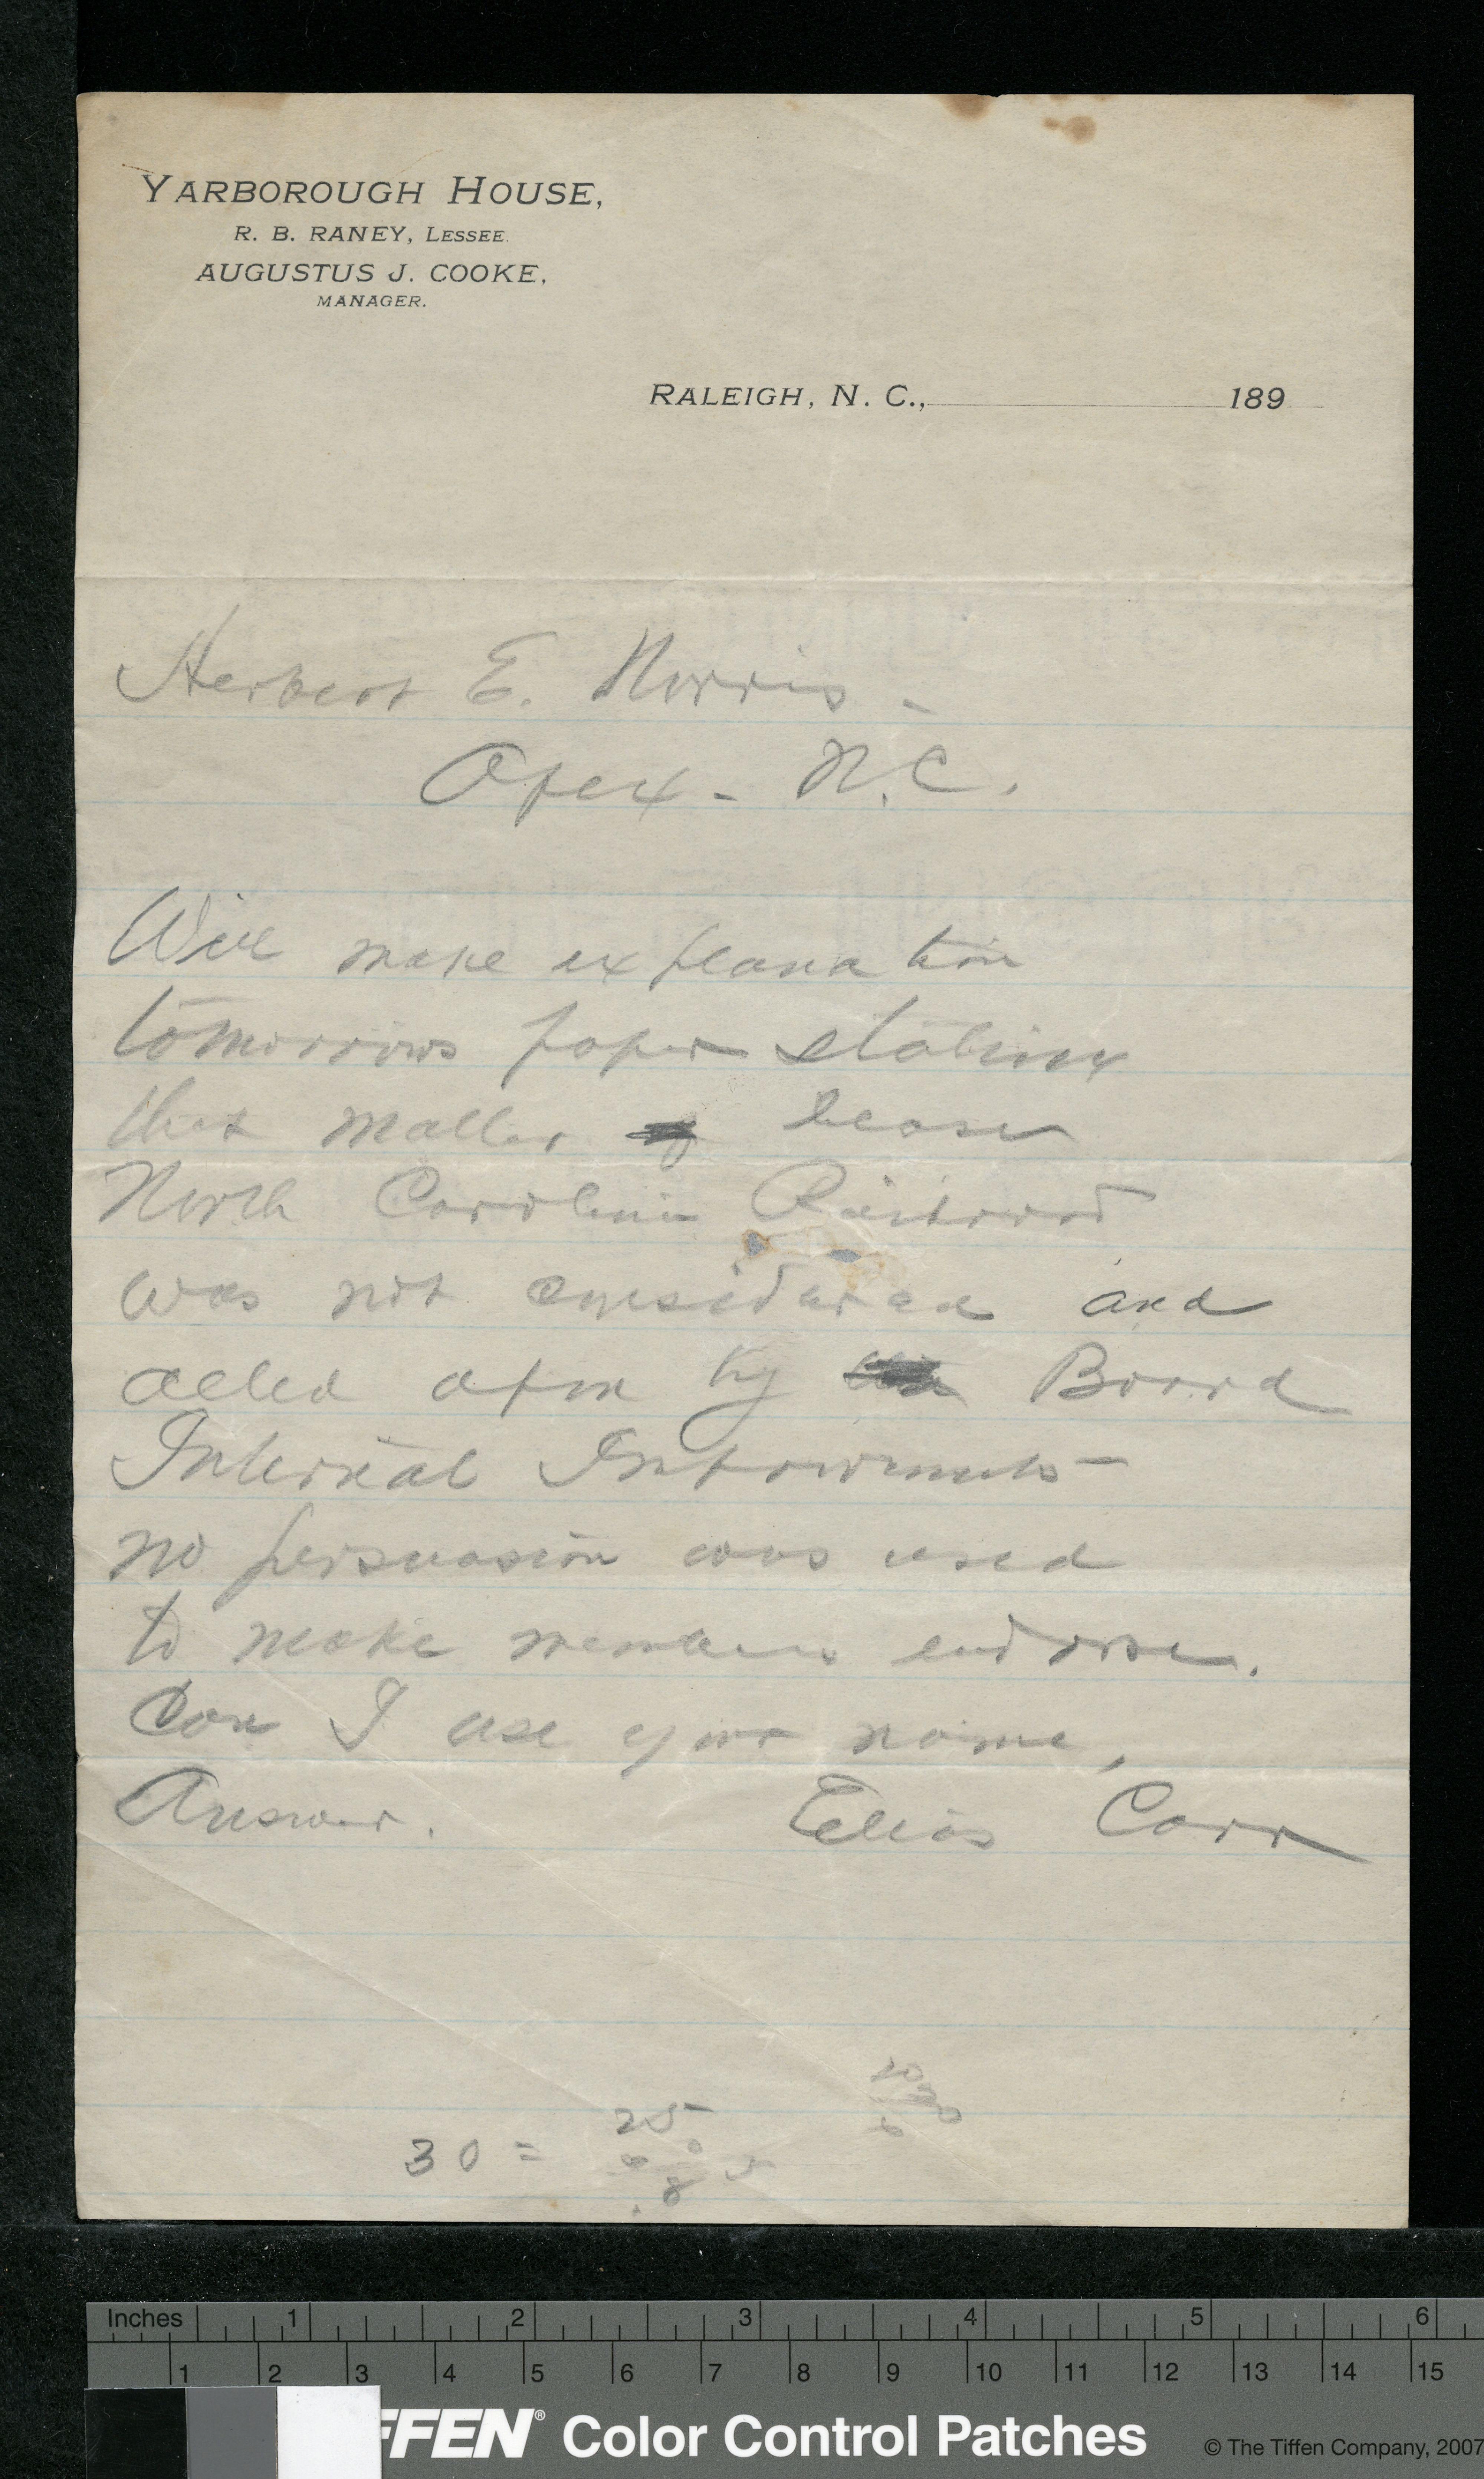 YARBOROUGH HOUSE,
R. B. RANEY, LESSEE.
AUGUSTUS J. COOKE,
MANAGER.
RALEIGH, N. C., 189
Herbert E. Norris -
Apex - N.C.
Will make explanation
tomorrows paper stating
that matter lease
North Carolina Railroad
was not considered and
acted upon by Board
Internal Improvements -
no persuasion was used
to make members endorse.
Can I use your name,
Answer. Elias Carr
25
30 =
Inches 1 2 3 4 5 6
1 2 3 4 5 6 7 8 9 10 11 12 13 14 15
FFEN® Color Control Patches © The Tiffen Company, 2007